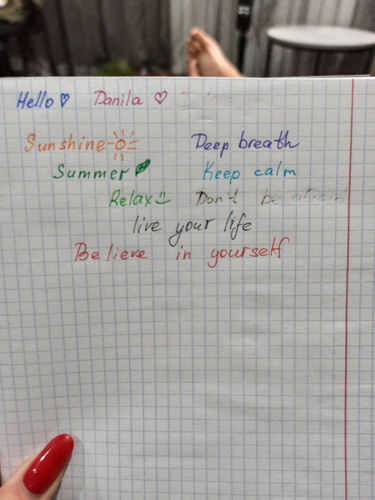 Hello Danila
Sunshine Deep breath
Summer Keep calm
Relax Don't be afraid
live your life
Believe in yourself